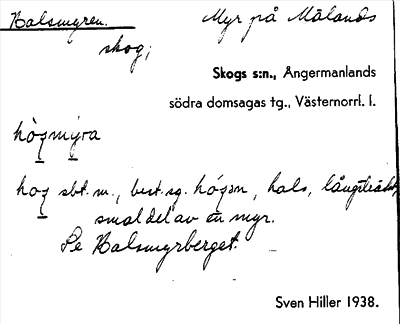 Halsmyren. Myr på Målands
skog;
Skogs s:n., Ångermanlands
södra domsagas tg., Västernorrl. l.
hògmýra
hog sbt. m., best. sg. hógən, hals, långsträckt,
smal del av en myr.
Se Halsmyrberget.
Sven Hiller 1938.